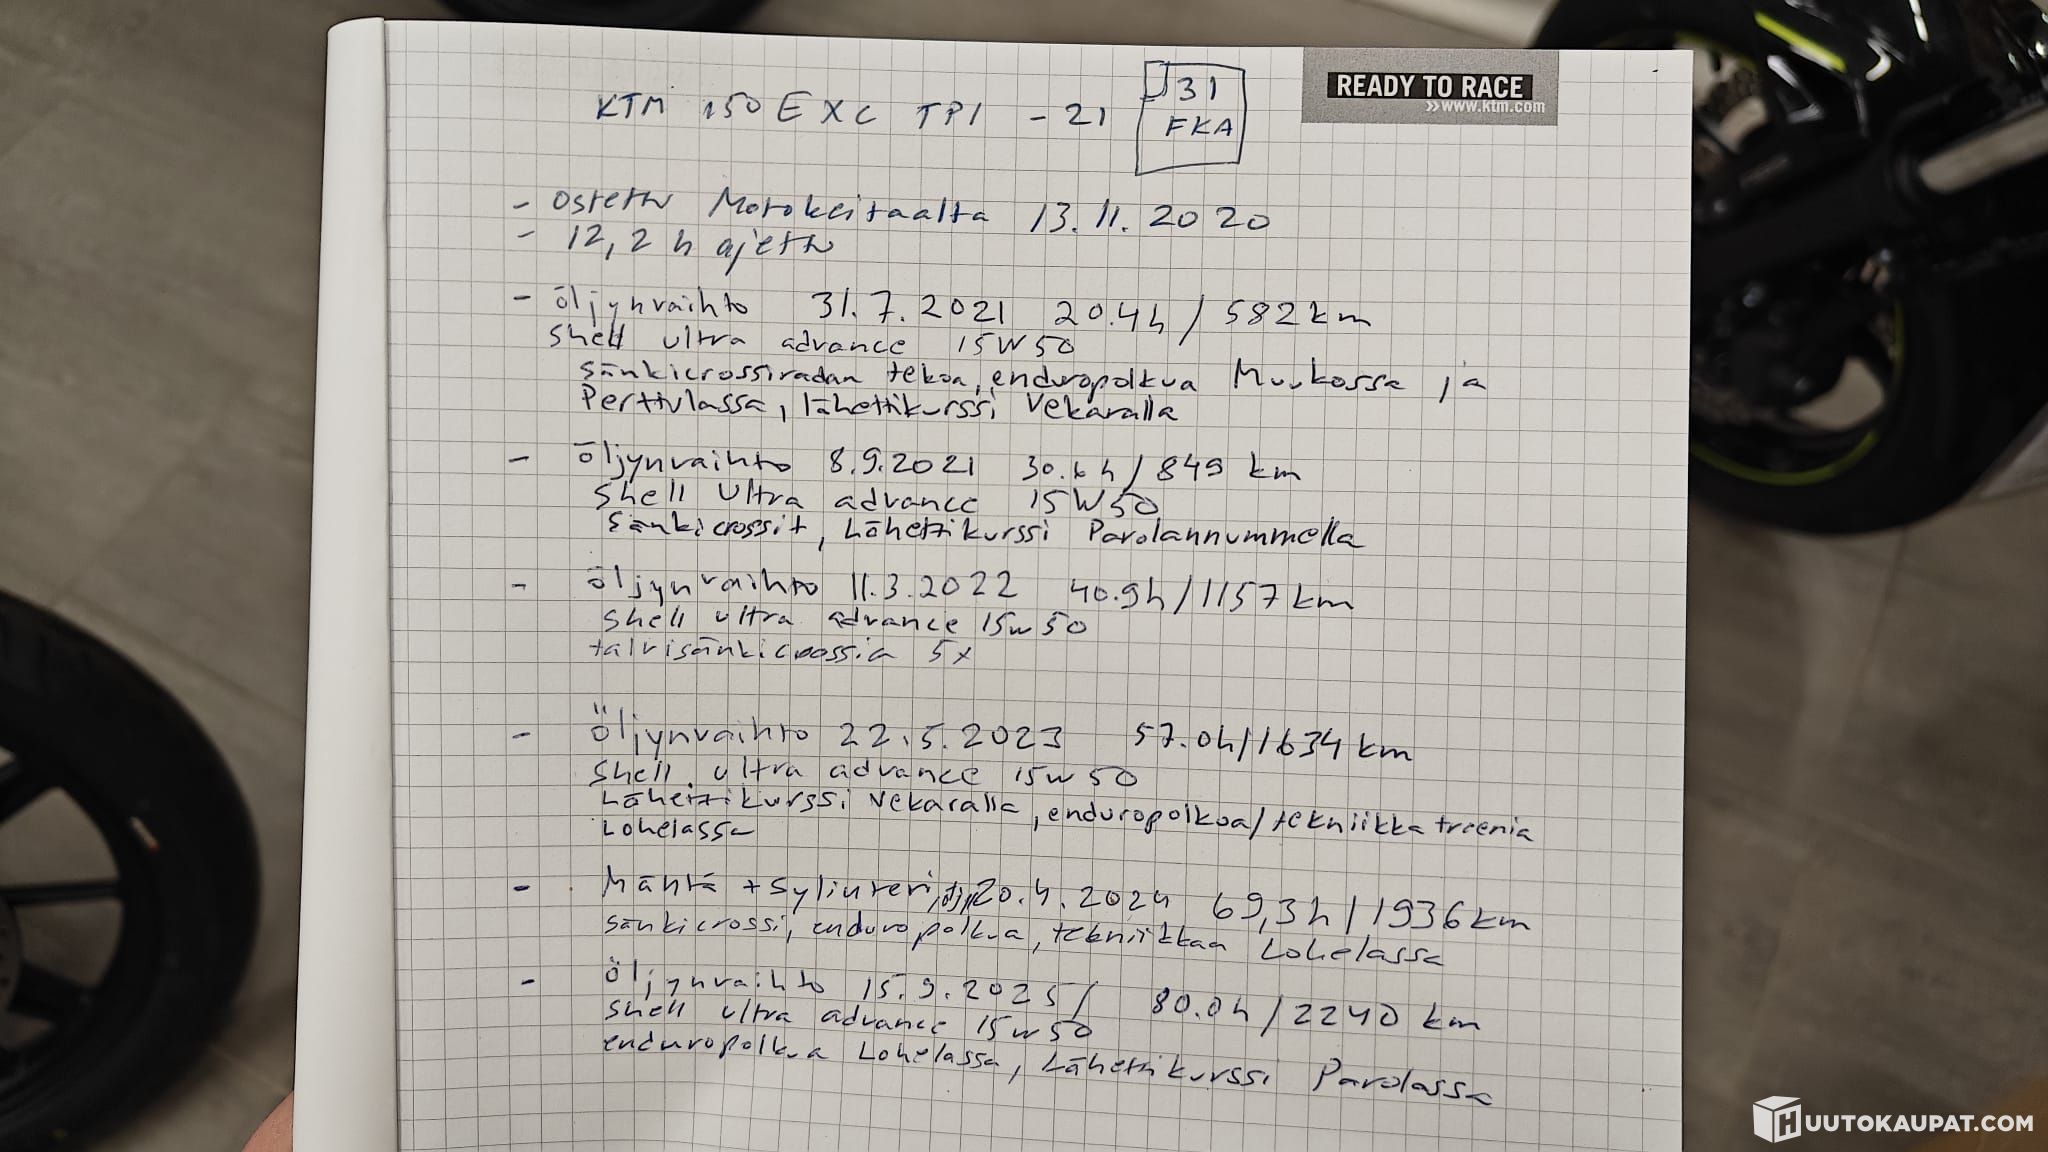 KTM 150 EXC TPI -21
31
FKA
READY TO RACE
»www.ktm.com
- Ostettu Motokeitaalta 13.11.2020
- 12,2 h ajettu
- öljynvaihto 31.7.2021 20.4h / 582km
Shell ultra advance 15W50
Sänkicrossiradan tekoa, enduropolkua Muukossa ja
Perttulassa, lähettikurssi Vekaralla
- öljynvaihto 8.9.2021 30.6h / 849 km
Shell Ultra advance 15W50
Sänkicrossit, Lähettikurssi Parolannummella
- öljynvaihto 11.3.2022 40.9h / 1157km
Shell ultra advance 15w50
talvisänkicrossia 5x
- Öljynvaihto 22.5.2023 57.0h / 1634 km
Shell ultra advance 15w50
Lähettikurssi Vekaralla, enduropolkua / tekniikkatreenia
Lohelassa
- Mäntä + sylinteri, öljy, 20.4.2024 69,3h / 1936km
sänkicrossi, enduropolkua, tekniikkaa Lohelassa
- Öljynvaihto 15.9.2025 / 80.0h / 2240 km
Shell ultra advance 15w50
enduropolkua Lohelassa, Lähettikurssi Parolassa
HUUTOKAUPAT.COM